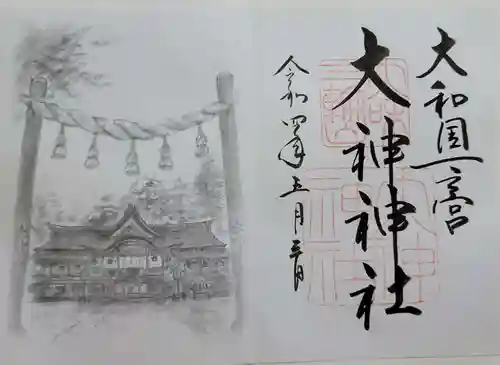 大和国一之宮
大神神社
令和四年五月三日